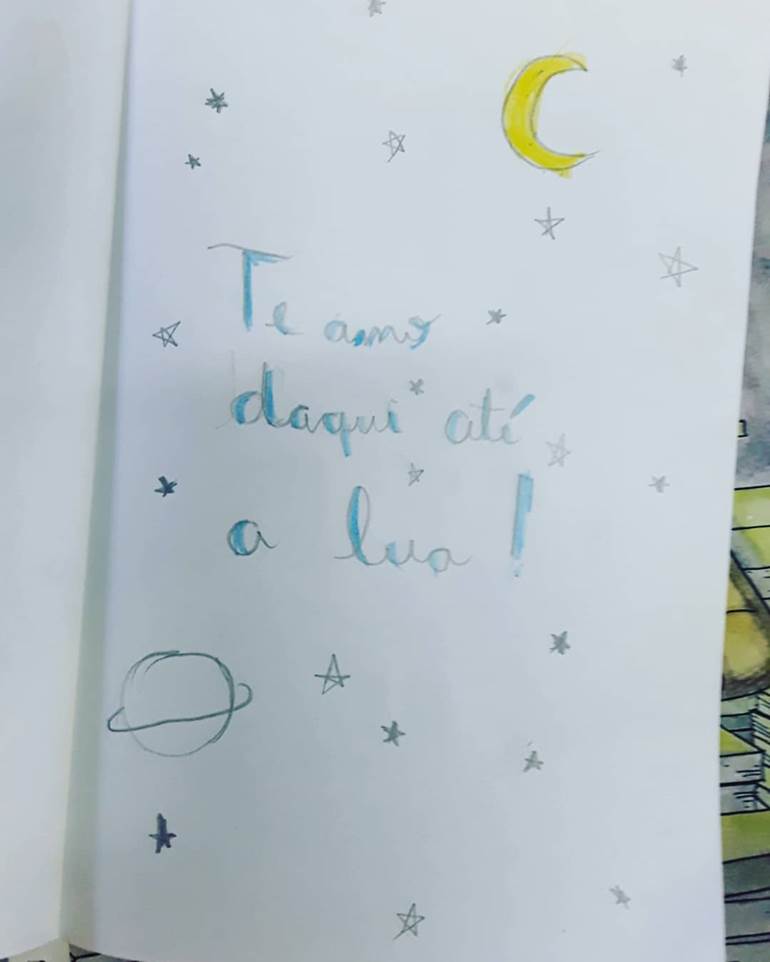 Te amo
daqui até
a lua!